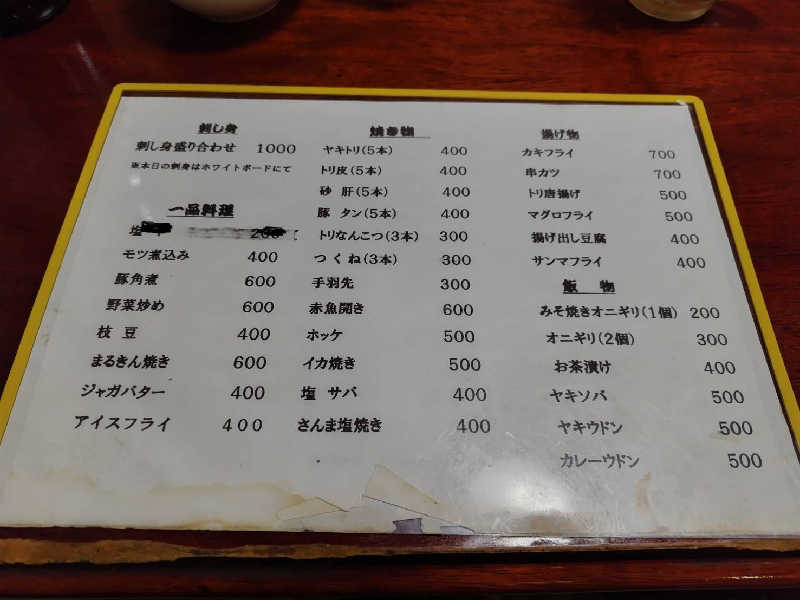 刺し身
刺し身盛り合わせ 1000
※本日の刺身はホワイトボードにて
一品料理
塩 200
モツ煮込み 400
豚角煮 600
野菜炒め 600
枝豆 400
まるきん焼き 600
ジャガバター 400
アイスフライ 400
焼き物
ヤキトリ(5本) 400
トリ皮(5本) 400
砂肝(5本) 400
豚タン(5本) 400
トリなんこつ(3本) 300
つくね(3本) 300
手羽先 300
赤魚開き 600
ホッケ 500
イカ焼き 500
塩サバ 400
さんま塩焼き 400
揚げ物
カキフライ 700
串カツ 700
トリ唐揚げ 500
マグロフライ 500
揚げ出し豆腐 400
サンマフライ 400
飯物
みそ焼きオニギリ(1個) 200
オニギリ(2個) 300
お茶漬け 400
ヤキソバ 500
ヤキウドン 500
カレーウドン 500